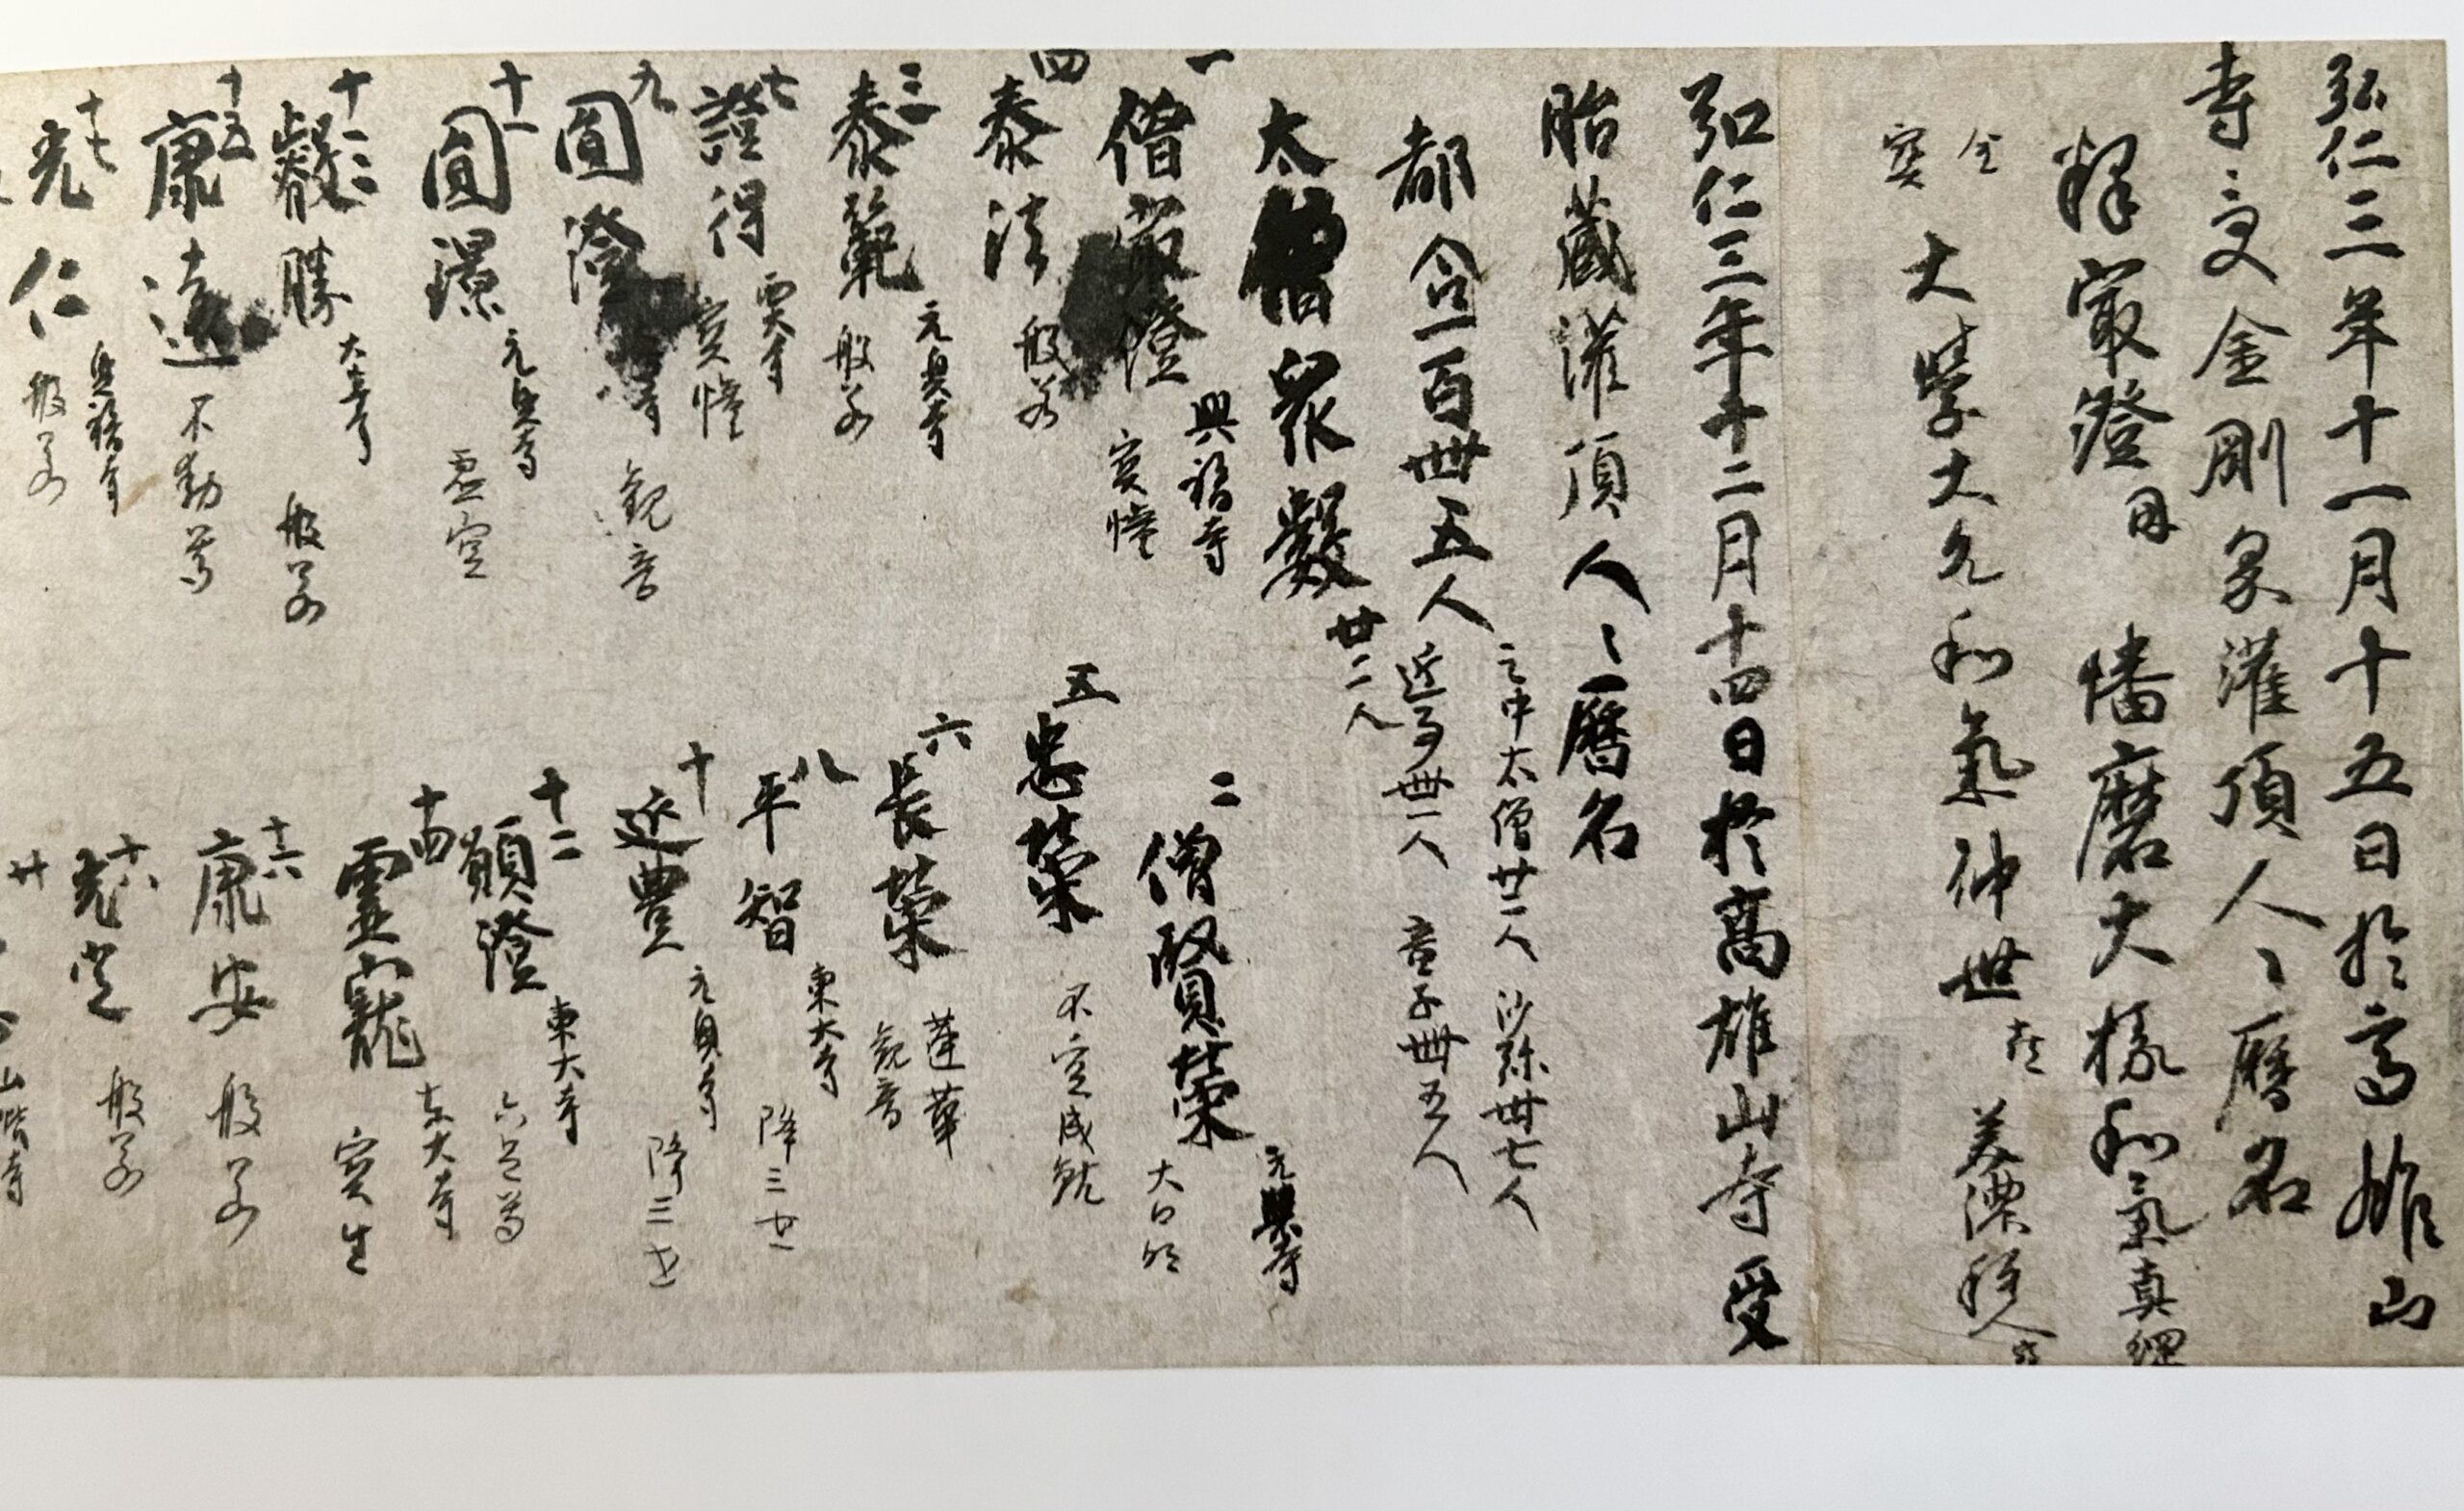 弘仁三年十一月十五日於高雄山
寺受金剛界灌頂人〻曆名
釋最澄 因 幡磨大掾和氣真綱
大學大允和氣仲世 喜 美濃種人
弘仁三年十二月十四日於高雄山寺受
胎藏灌頂人〻曆名
都合一百卌五人 之中太僧廿二人 沙弥卅七人
近事卌一人 童子卌五人
太僧衆數 廿二人
一 僧 澄 興福寺 寶幢
二 僧賢榮 元興寺 大日
四 泰法 般若
五 忠榮 不空成就
三 泰範 元興寺 般若
六 長榮 蓮華 觀音
七 證得 寶幢
八 平智 東大寺 降三世
九 圓澄 寺 觀音
十 延豊 元興寺 降三世
十一 圓璟 元興寺 虛空
十二 願澄 東大寺
十三 勝 大安寺 般若
十四 靈龍 東大寺 寶生
十五 康遠 不動尊
十六 康安 般若
十七 光仁 興福寺 般若
十八 光 般若
廿 山階寺